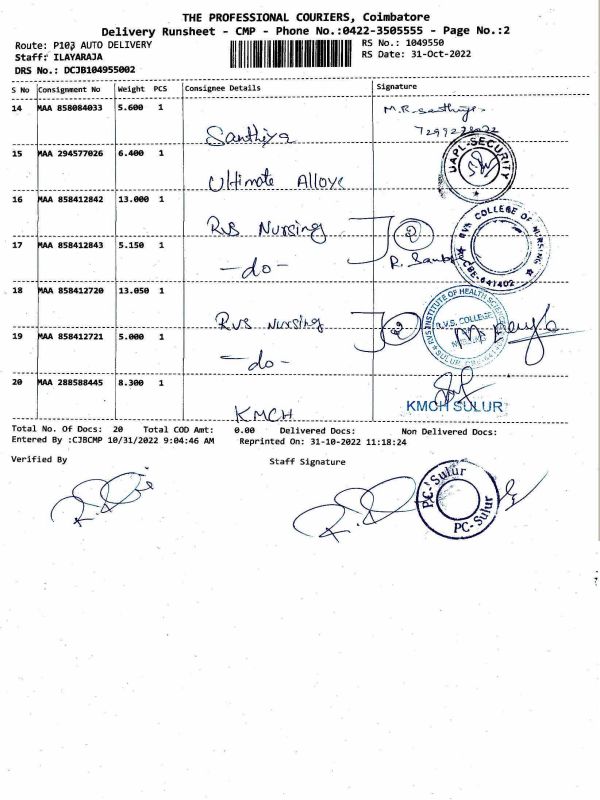 THE PROFESSIONAL COURIERS, Coimbatore
Delivery Runsheet - CMP - Phone No.:0422-3505555 - Page No.:2
Route: P103 AUTO DELIVERY
RS No.: 1049550
Staff: ILAYARAJA
RS Date: 31-Oct-2022
DRS No.: DCJB104955002
S No Consignment No Weight PCS Consignee Details Signature
14 MAA 858084033 5.600 1
Santhiya
15 MAA 294577026 6.400 1
UAPL-SECURITY
Ultimate Alloys
16 MAA 858412842 13.000 1
RVS Nursing 2
RVS COLLEGE OF NURSING
CBE-641402
17 MAA 858412843 5.150 1
-do-
18 MAA 858412720 13.050 1
RVS Nursing 2
RVS INSTITUTE OF HEALTH SCIENCES
R.V.S. COLLEGE
19 MAA 858412721 5.000 1
-do-
20 MAA 288588445 8.300 1
KMCH
KMCH SULUR
Total No. Of Docs: 20 Total COD Amt: 0.00 Delivered Docs: Non Delivered Docs:
Entered By :CJBCMP 10/31/2022 9:04:46 AM Reprinted On: 31-10-2022 11:18:24
Verified By
Staff Signature
PC-Sulur
PC-Sulur